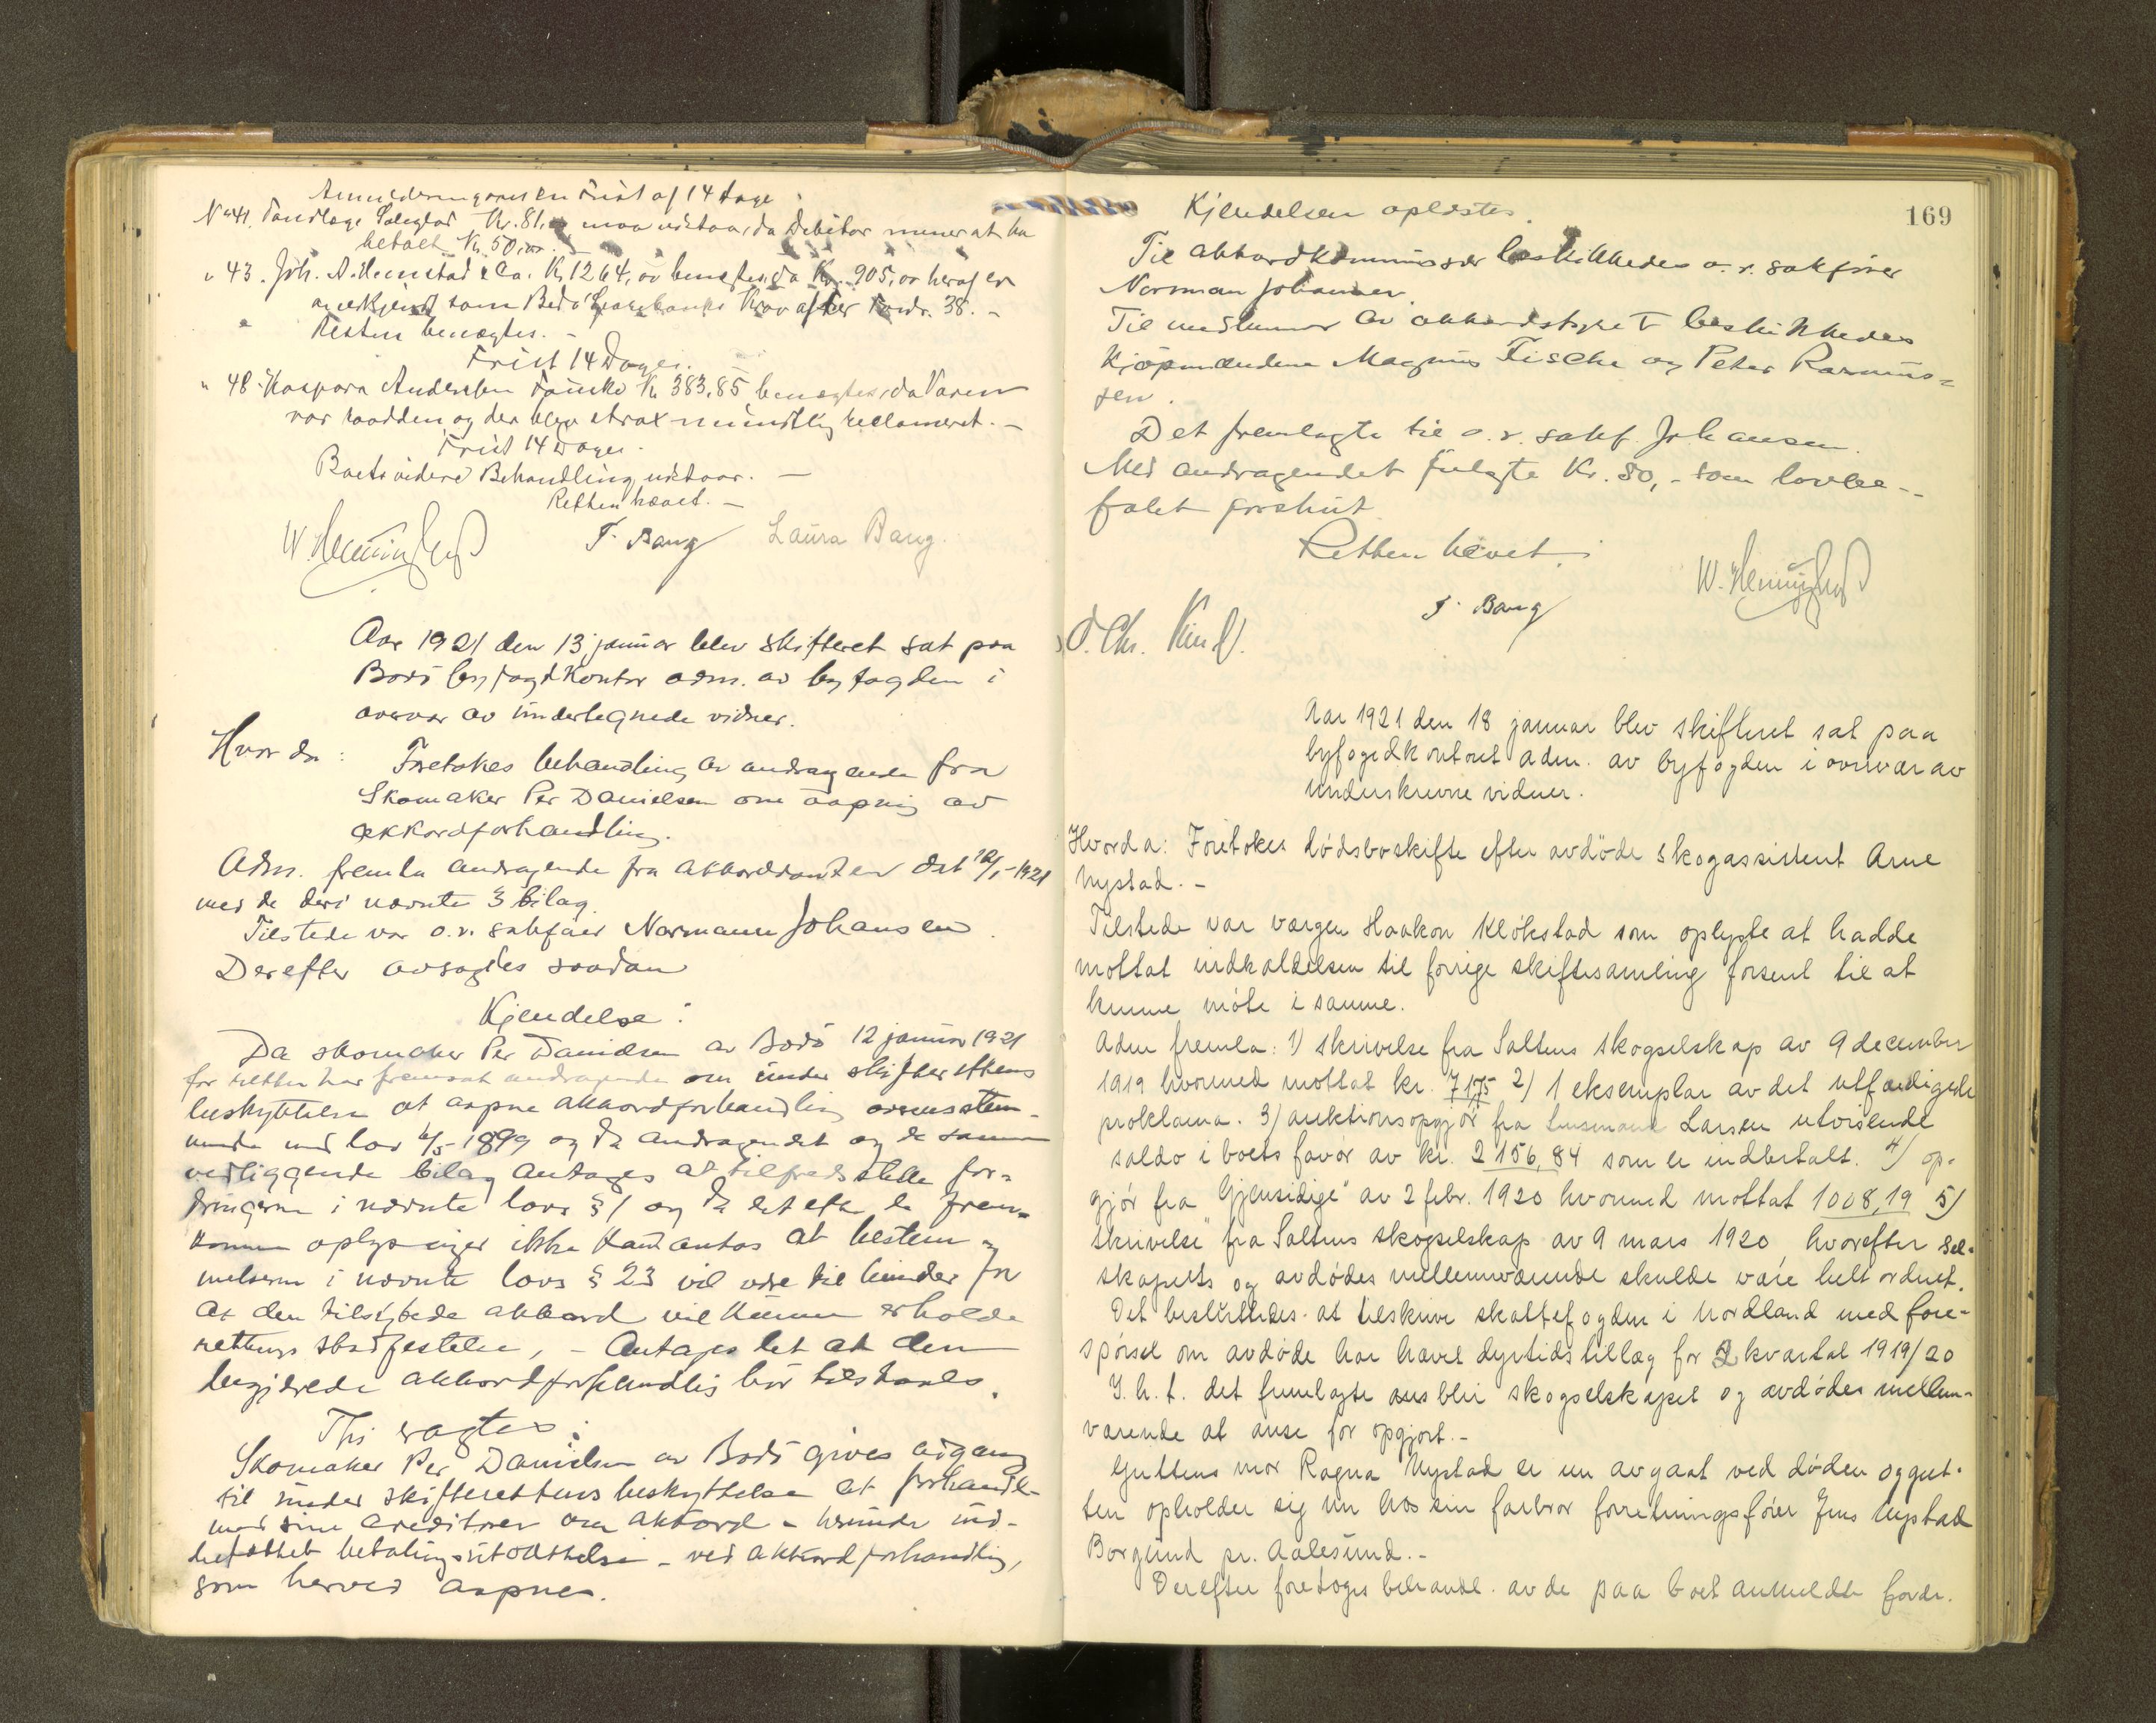 Anmelderen gaves en Frist af 14 dage.
No 41. Tandlæge Kr. 81, maa udstaa, da Debitor mener at ha
betalt Kr. 50,00. -
" 43. Joh. A. Hemstad & Co. Kr. 1264,00 benegtes, da Kr. 905,00 heraf er
anerkjent som Bodø Sparebanks Krav efter Fordr. 38. -
Resten benægtes. -
Frist 14 Dage.
" 48. Kaspara Andersen Fauske Kr 383,85 benægtes, da Varen
var raadden og der blev strax mundtlig reclameret. -
Frist 14 Dage.
Boets videre Behandling udstaar. -
Retten hævet. -
W. F. Bang Laura Bang.
Aar 1921 den 13 januar blev skifteret sat paa
Bodö byfogdkontor adm. av byfogden i
overvær av undertegnede vidner.
Hvor da: Foretokes behandling av andragende fra
Skomaker Per Danielsen om aapning av
akkordforhandling.
Adm. fremla andragende fra akkordanten dat 12/1-1921
med de deri nævnte 3 bilag.
Tilstede var o.r. sakfører Normann Johansen.
Derefter avsagdes saadan
Kjendelse:
Da skomaker Per Danielsen av Bodö 12 januar 1921
for retten har fremsat andragende om under skifterettens
beskyttelse at aapne akkordforhandling overensstem-
mende med lov 6/5-1899 og da andragendet og de samme
vedliggende bilag antages at tilfredsstille for-
dringerne i nævnte lovs § 1 og da det efter de frem-
komne oplysninger ikke kan antas at bestem-
melserne i nævnte lovs § 23 vil være til hinder for
at den tilsigtede akkord vil kunne erholde
rettens stadfestelse, - antages det at den
begjærede akkordforhandling bör tilstaaes.
Thi eragtes:
Skomaker Per Danielsen av Bodö gives adgang
til under skifterettens beskyttelse at forhandle
med sine creditorer om akkord - herunder ind-
befattet betalingsutsættelse - ved akkordforhandling,
som herved aapnes.
169
Kjendelsen oplæstes.
Til akkordkommissær beskikkedes o.r. sakfører
Norman Johansen.
Til medlemmer av akkordstyret beskikkedes
kjöpmændene Magnus Tische og Peter Rasmus-
sen.
Det fremlagte til o.r. sakf. Johansen.
Med andragendet fulgte Kr. 80,- som lovbe-
falet forskut
Retten hævet.
W.
F. Bang
O. Chr. Kind.
Aar 1921 den 18 januar blev skifteret sat paa
byfogedkontoret adm. av byfogden i overvær av
underskrevne vidner.
Hvorda: Foretokes dødsboskifte efter avdøde skogassistent Arne
Nystad. -
Tilstede var værgen Haakon Kløkstad som oplyste at hadde
mottat indkaldelsen til forrige skiftesamling forsent til at
kunne møte i samme.
Adm fremla: 1) skrivelse fra Saltens skogselskap av 9 december
1919 hvormed mottat kr. 71,75 2) 1 eksemplar av det utfærdigede
proklama. 3) auktionsopgjør fra Lensmand Larsen utvisende
saldo i boets favør av kr. 2156,84 som er indbetalt. 4) op-
gjør fra "Gjensidige" av 2 febr. 1920 hvormed mottat 1008,19 5)
skrivelse fra Saltens skogselskap av 9 mars 1920 hvorefter sel-
skapets og avdødes mellemværende skulde være helt ordnet.
Det besluttedes at tilskrive skattefogden i Nordland med fore-
spørsel om avdøde har hævet dyrtidstillæg for 2 kvartal 1919/20
I. h. t. det fremlagte blir skogselskapet og avdødes mellem-
værende at anse for opgjort. -
Guttens mor Ragna Nystad er nu avgaat ved døden og gut-
ten opholder sig nu hos sin farbror forretningsfører Jens Nystad
Borgund pr. Aalesund. -
Derefter foretoges behandl. av de paa boet anmeldte fordr.